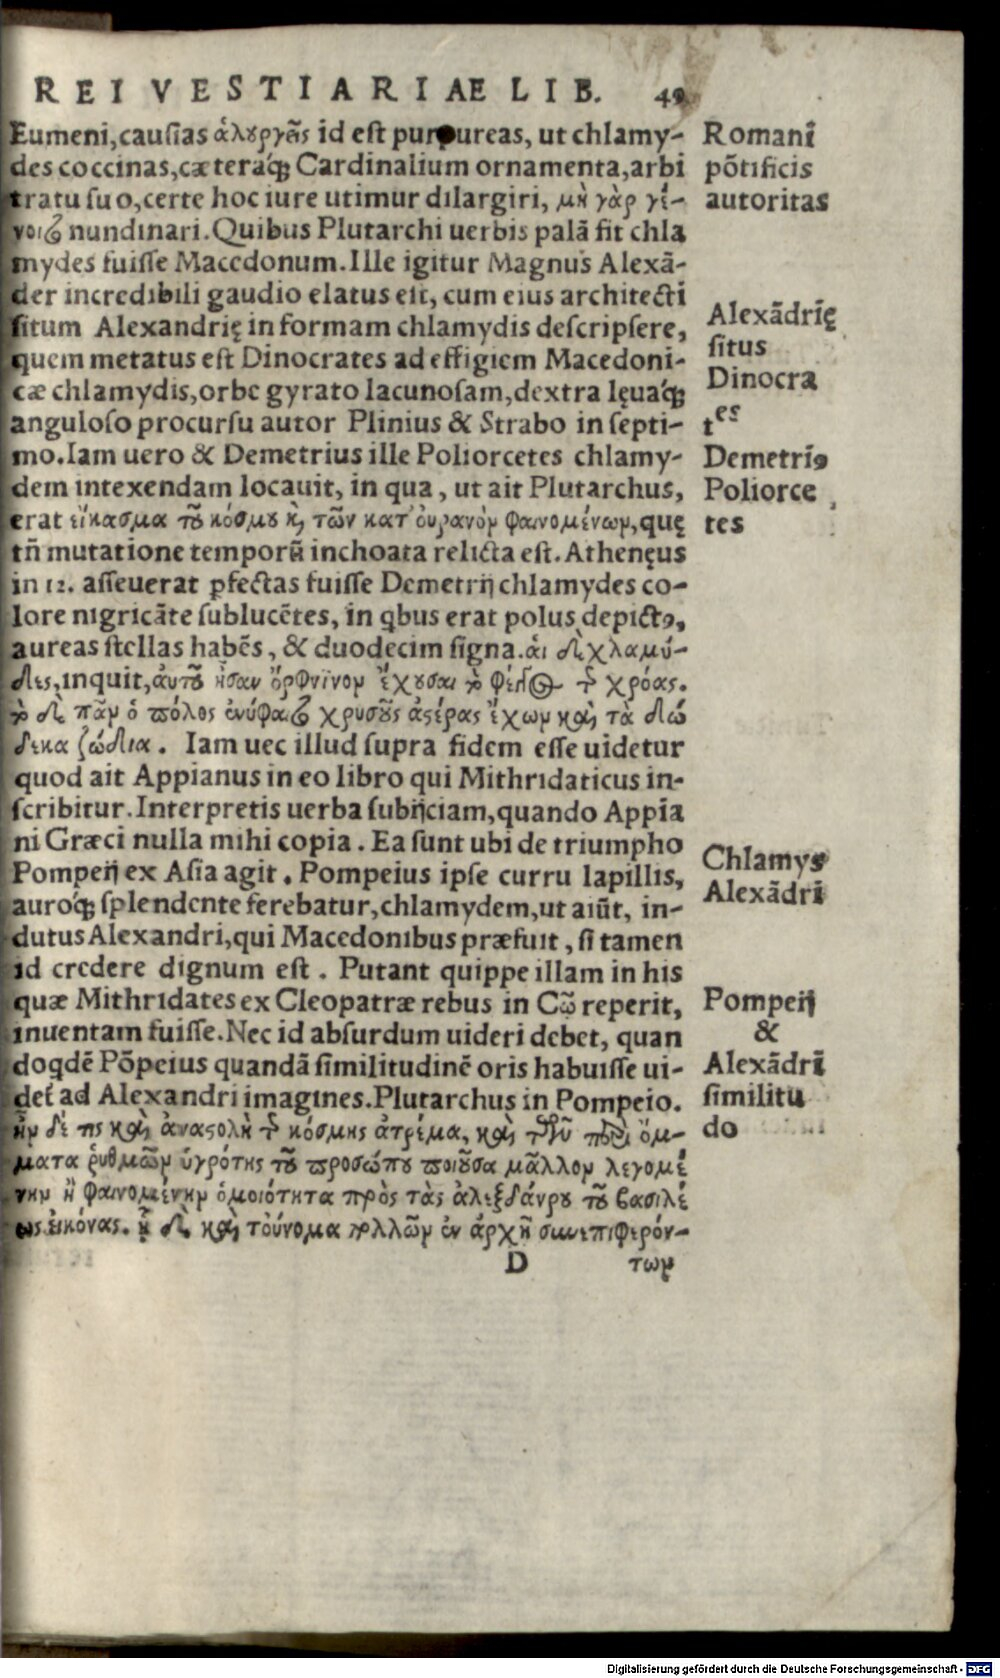 REI VESTIARIAE LIB. 49
Eumeni, causias ἁλουργεῖς id est purpureas, ut chlamy-
des coccinas, cæteraq́ꝫ Cardinalium ornamenta, arbi
tratu suo, certe hoc iure utimur dilargiri, μὴ γὰρ γέ-
νοιτο nundinari. Quibus Plutarchi uerbis palã fit chla
mydes fuisse Macedonum. Ille igitur Magnus Alexã-
der incredibili gaudio elatus est, cum eius architecti
situm Alexandrię in formam chlamydis descripsere,
quem metatus est Dinocrates ad effigiem Macedoni-
cæ chlamydis, orbe gyrato lacunosam, dextra lęuaq́ꝫ
anguloso procursu autor Plinius & Strabo in septi-
mo. Iam uero & Demetrius ille Poliorcetes chlamy-
dem intexendam locauit, in qua, ut ait Plutarchus,
erat εἴκασμα τοῦ κόσμου κỳ τῶν κατ' ὀυρανὸν φαινομένων, quę
tñ mutatione temporũ inchoata relicta est. Athenęus
in 12. asseuerat ꝑfectas fuisse Demetrij chlamydes co-
lore nigricãte sublucẽtes, in qbus erat polus depictꝰ,
aureas stellas habẽs, & duodecim signa. ἁι δὲ χλαμύ-
δες, inquit, ἀυτοῦ ἦσαν ὄρφνινον ἔχουσαι τὸ φέγγος τῆς χρόας.
τὸ δὲ πᾶν ὁ πόλος ἐνύφαντο χρυσοῦς ἀστέρας ἔχων καὶ τὰ δώ
δεκα ζώδια. Iam uec illud supra fidem esse uidetur
quod ait Appianus in eo libro qui Mithridaticus in-
scribitur. Interpretis uerba subijciam, quando Appia
ni Græci nulla mihi copia. Ea sunt ubi de triumpho
Pompeij ex Asia agit. Pompeius ipse curru lapillis,
auroq́ꝫ splendente ferebatur, chlamydem, ut aiũt, in-
dutus Alexandri, qui Macedonibus præfuit, si tamen
id credere dignum est. Putant quippe illam in his
quæ Mithridates ex Cleopatræ rebus in Cῶ reperit,
inuentam fuisse. Nec id absurdum uideri debet, quan
doqdẽ Põpeius quandã similitudinẽ oris habuisse ui-
det́ ad Alexandri imagines. Plutarchus in Pompeio.
ἦν δέ τις καὶ ἀναστολὴ τῆς κόμης ἀτρέμα, καὶ τῶν περὶ ὄμ-
ματα ῥυθμῶν ὑγρότης τοῦ προσώπου ποιοῦσα μᾶλλον λεγομέ
νην ἢ φαινομένην ὁμοιότητα πρὸς τὰς ἀλεξάνδρου τοῦ βασιλέ
ως εἰκόνας. ᾗ δὲ καὶ τοὔνομα πολλῶν ἐν ἀρχῇ συνεπιφερόν-
D των
Romani
põtificis
autoritas
Alexãdrię
situs
Dinocra
tes
Demetriꝰ
Poliorce
tes
Chlamys
Alexãdri
Pompeij
&
Alexãdri
similitu
do
Digitalisierung gefördert durch die Deutsche Forschungsgemeinschaft - DFG